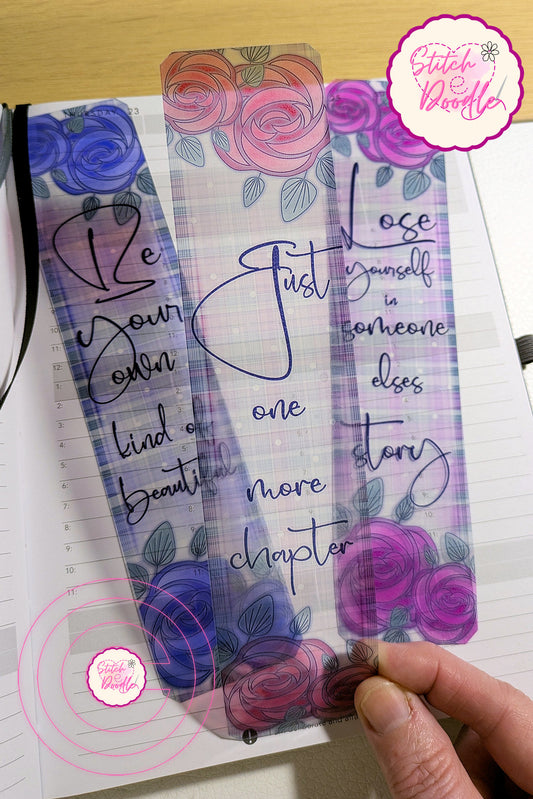 Stitch
e
Doodle
Be
your
own
kind of
beautiful
Just
one
more
chapter
Lose
yourself
in
someone
elses
story
Stitch
e
Doodle